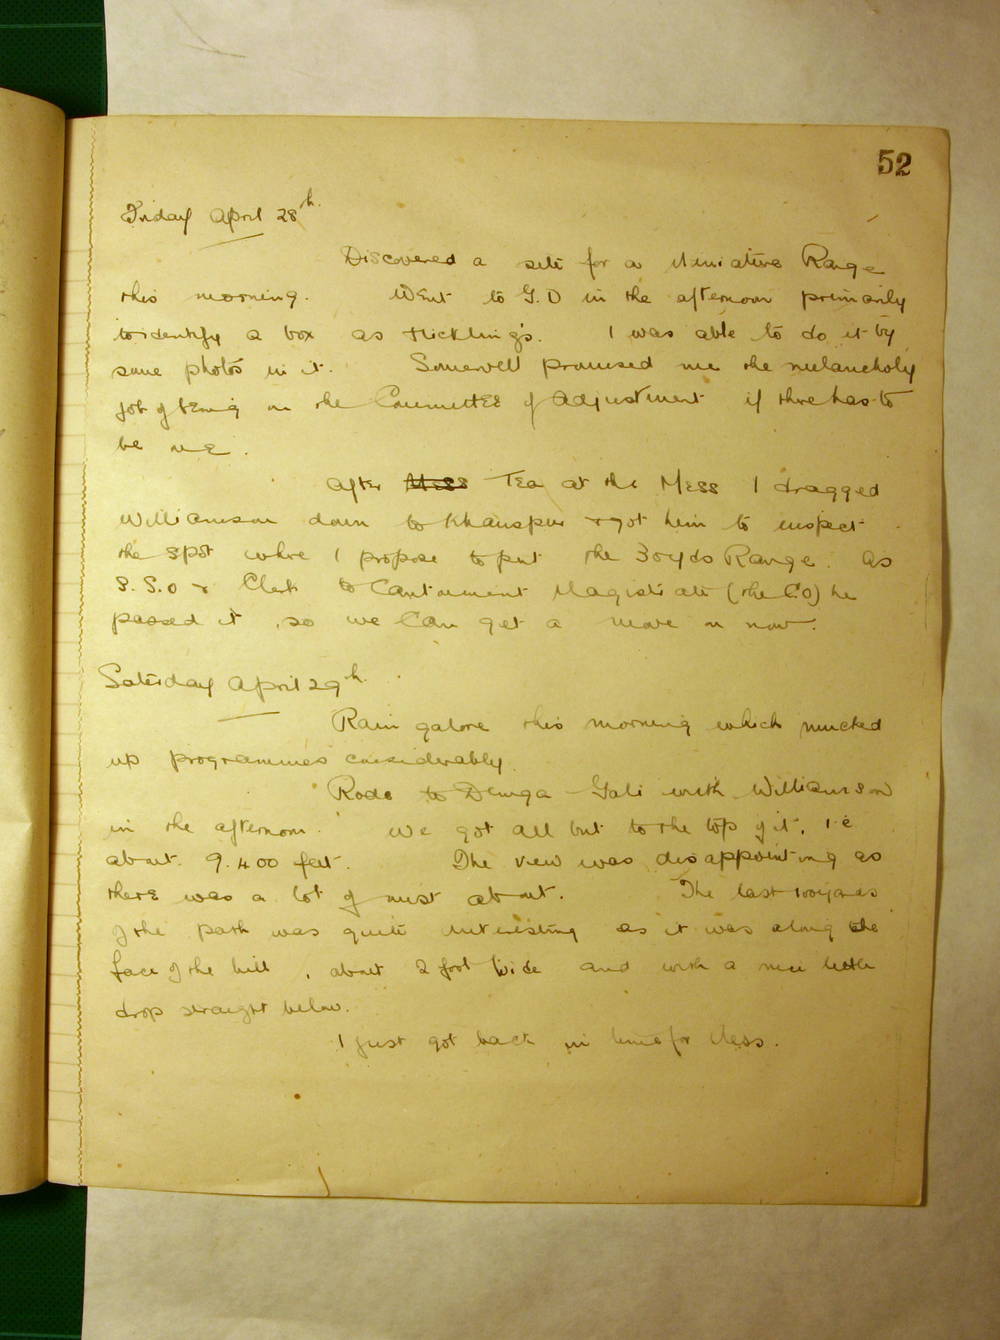 52
Friday April 28th.
Discovered a site for a Miniature Range
this morning. Went to G.D in the afternoon primarily
to identify a box as Hickling's. I was able to do it by
some photos in it. Somervell promised me the melancholy
job of being on the Committee of Adjustment if there has to
be one.
After Mess Tea at the Mess I dragged
Williamson down to Khanspur & got him to inspect
the spot where I propose to put the 30 yds Range. As
S.S.O & Clerk to Cantonment Magistrate (the C.O) he
passed it, so we can get a move on now.
Saturday April 29th.
Rain galore this morning which mucked
up programmes considerably.
Rode to Dunga Gali with Williamson
in the afternoon. We got all but to the top of it, i.e
about 9.400 feet. The view was disappointing as
there was a lot of mist about. The last 100 yards
of the path was quite interesting as it was along the
face of the hill, about 2 foot wide and with a nice little
drop straight below.
I just got back in time for Mess.